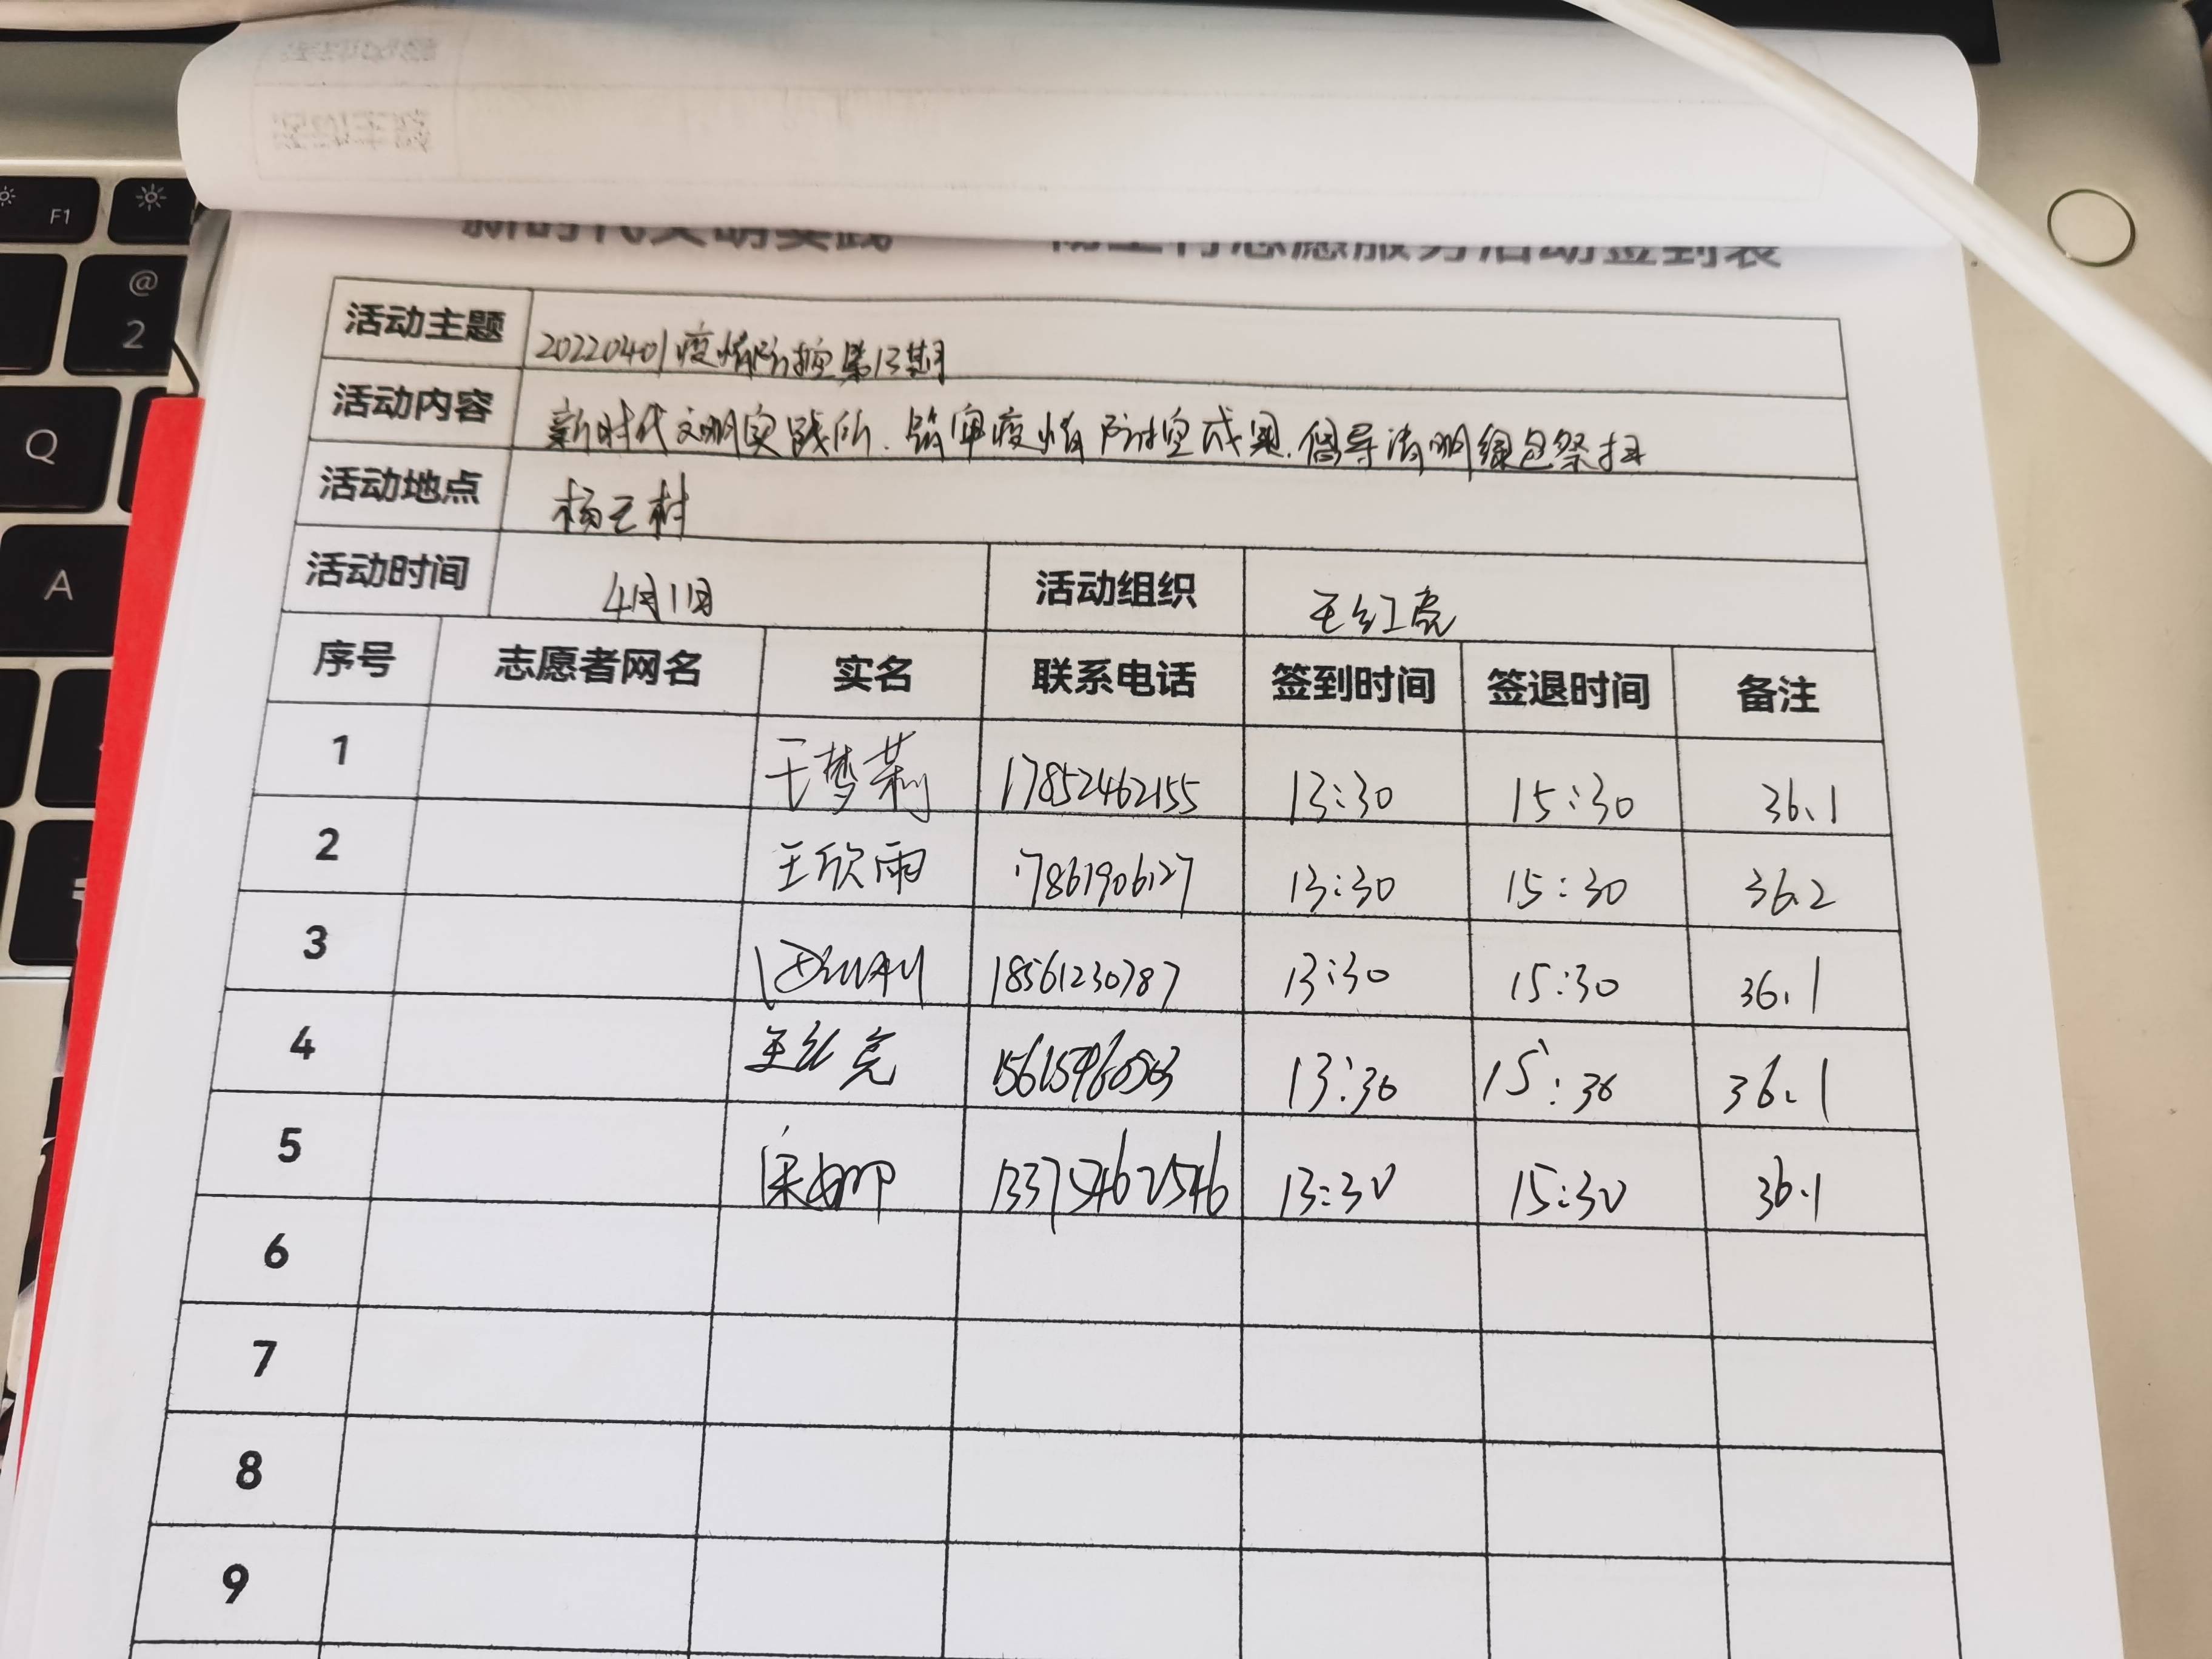 新时代文明实践 志愿服务活动签到表
活动主题 20220401疫情防控第13期
活动内容 新时代文明实践所.筑牢疫情防控成果.倡导清明绿色祭扫
活动地点 杨王村
活动时间 4月1日 活动组织 王红亮
序号 志愿者网名 实名 联系电话 签到时间 签退时间 备注
1 王梦莉 17852462155 13:30 15:30 36.1
2 王欣雨 17861906127 13:30 15:30 36.2
3 18561230787 13:30 15:30 36.1
4 王红亮 13:30 15:30 36.1
5 13375462546 13:30 15:30 36.1
6
7
8
9
F1
@
2
Q
A